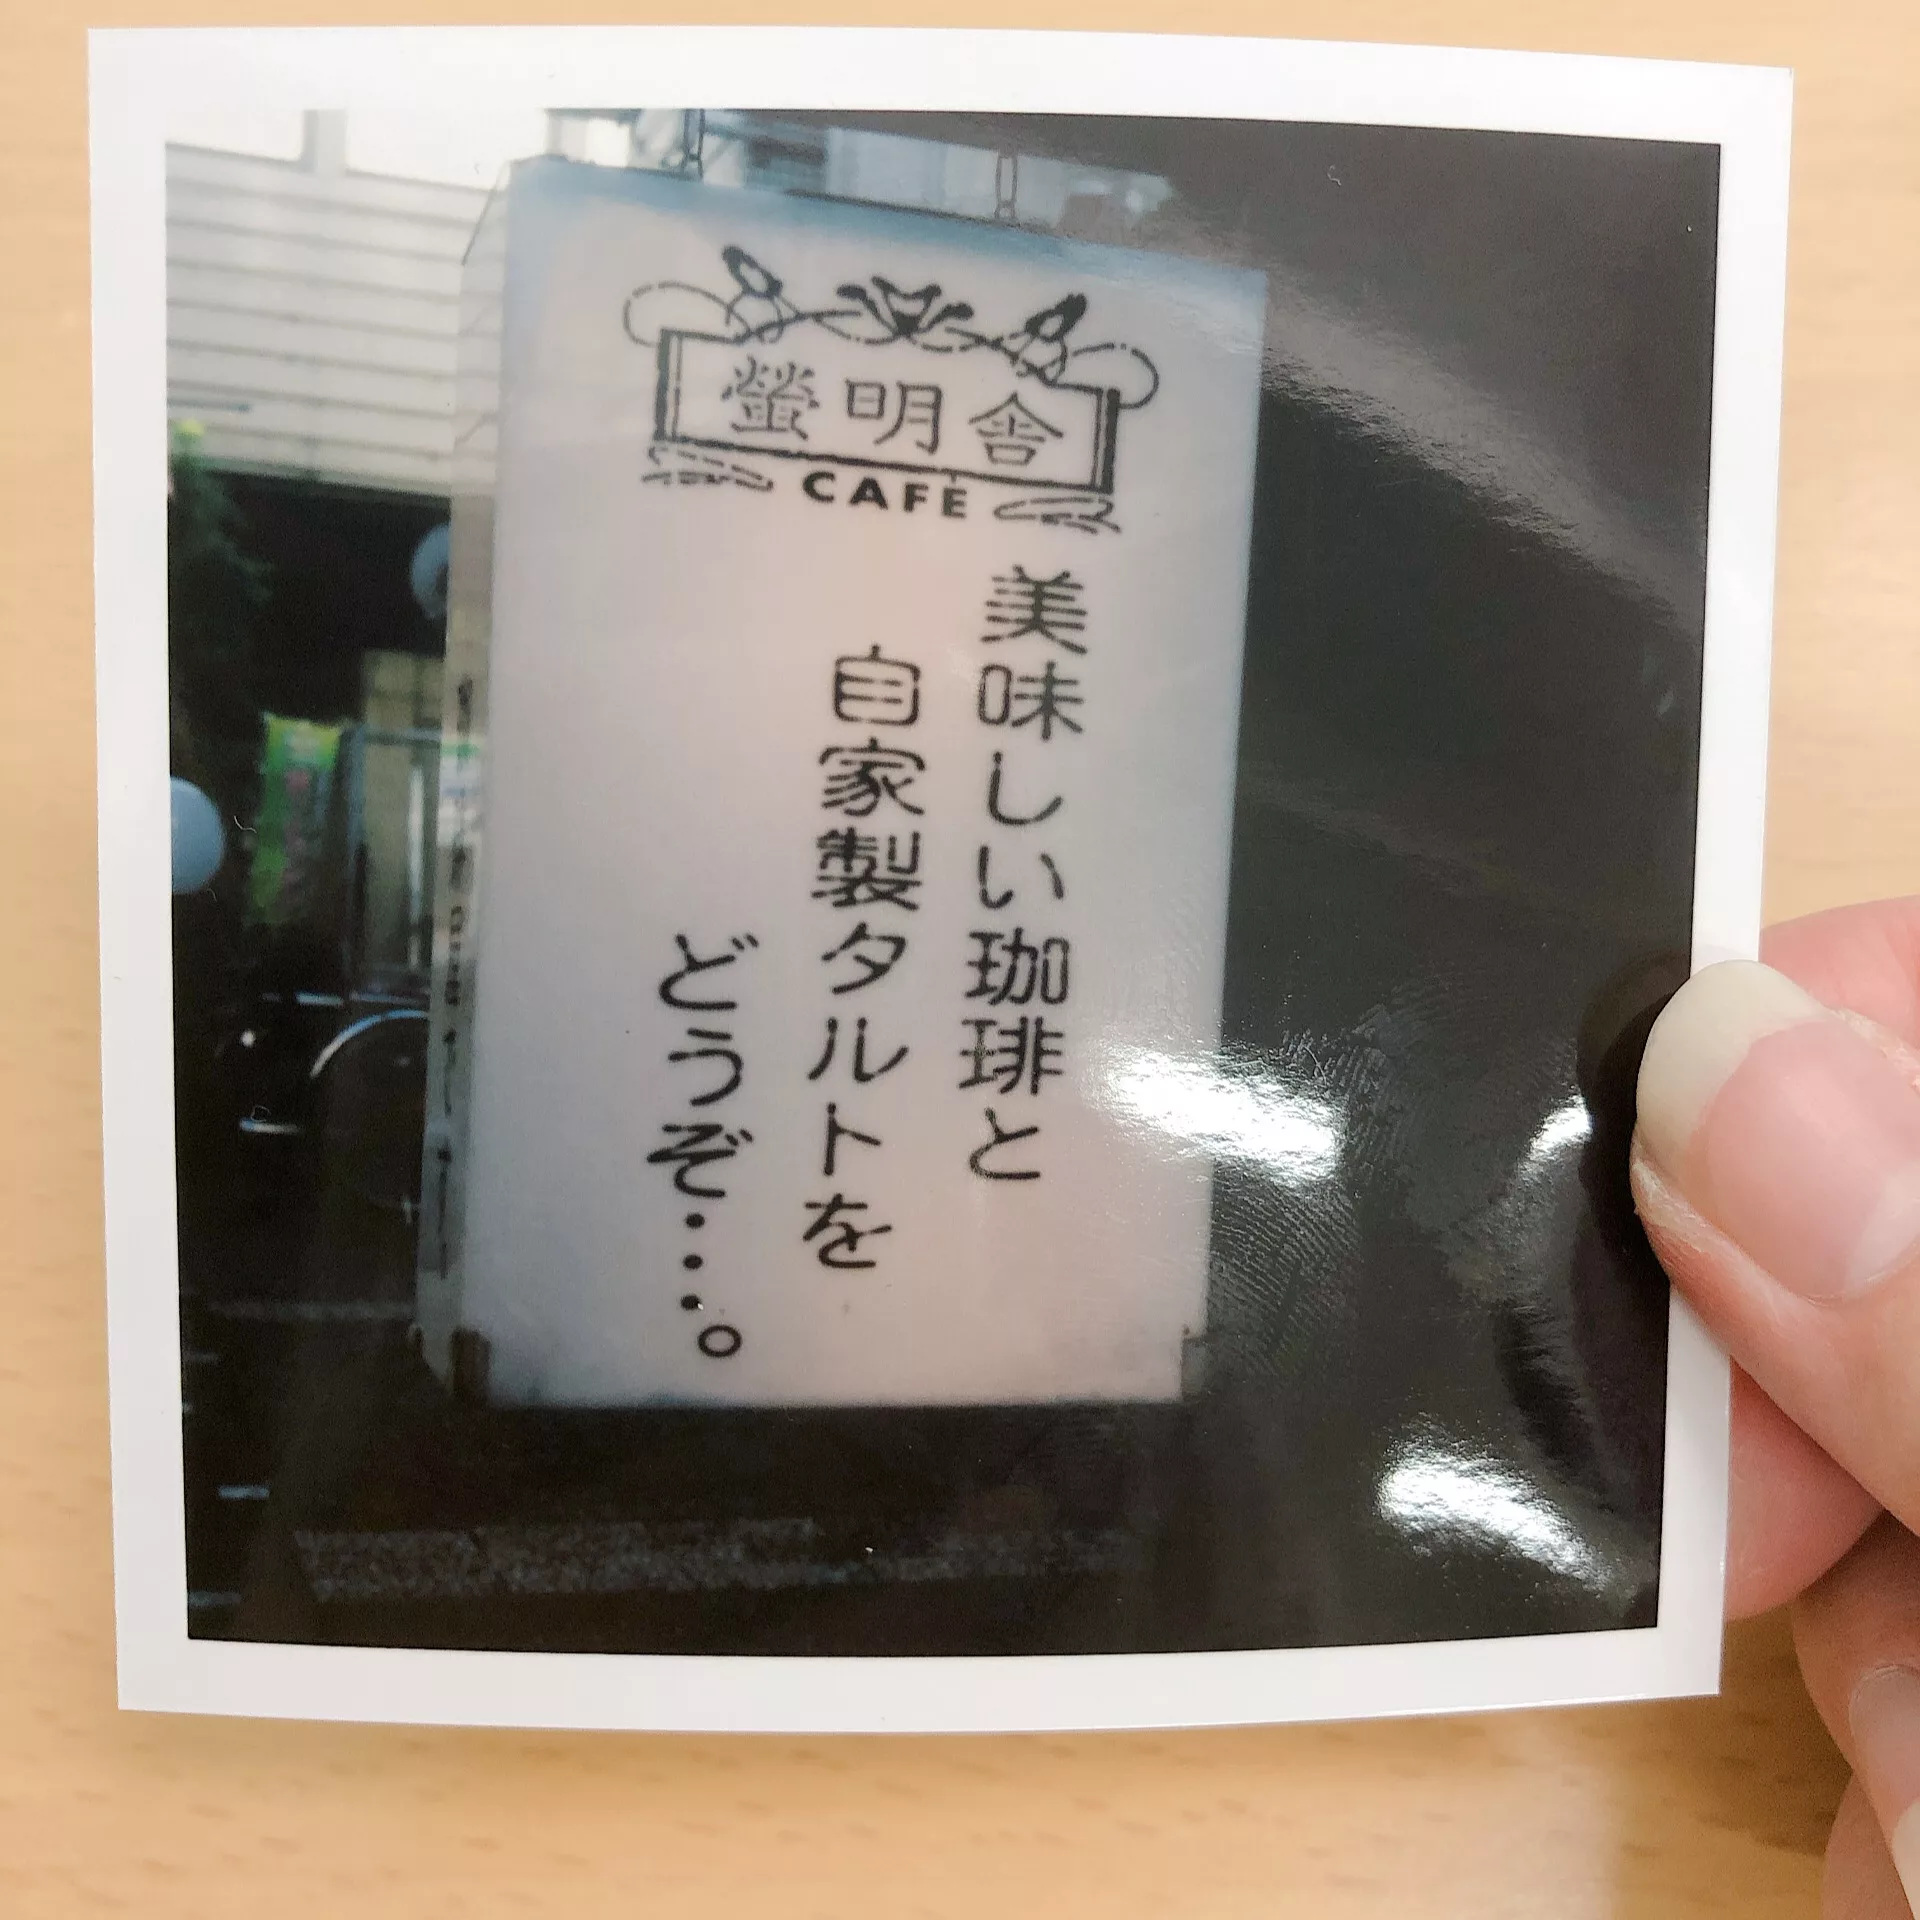 螢明舎
CAFE
美味しい珈琲と
自家製タルトを
どうぞ・・・。